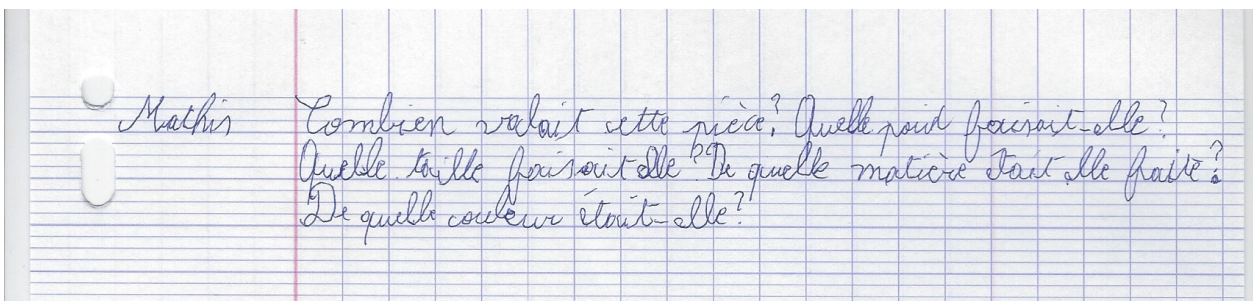 Mathis Combien valait cette pièce? Quelle poid faisait-elle?
Quelle taille faisait elle? De quelle matière était elle faite?
De quelle couleur était-elle?